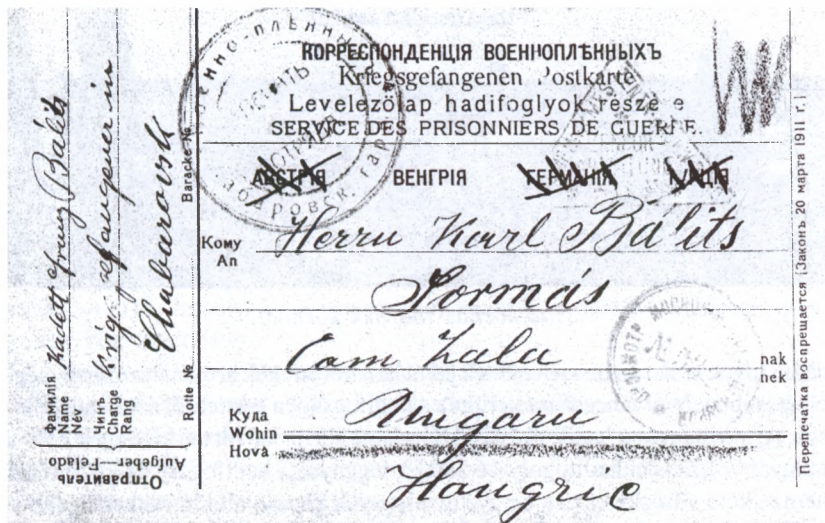 КОРРЕСПОНДЕНЦІЯ ВОЕННОПЛѢННЫХЪ
Kriegsgefangenen Postkarte
Levelezölap hadifoglyok részé e
SERVICE DES PRISONNIERS DE GUERRE.
АВСТРІЯ ВЕНГРІЯ ГЕРМАНІЯ
Кому
An
Herrn Karl Bálits
Tormás
Com Zala
nak
nek
Куда
Wohin
Hová
Ungarn
Hongrie
Отправитель
Aufgeber Feladó
Фамилія
Name
Nev
Kadett Franz Bálits
Чинъ
Charge
Rang
Kngsgefangener in
Chabarovsk
Rotte №
Baracke №
Перепечатка воспрещается (Законъ 20 марта 1911 г.)